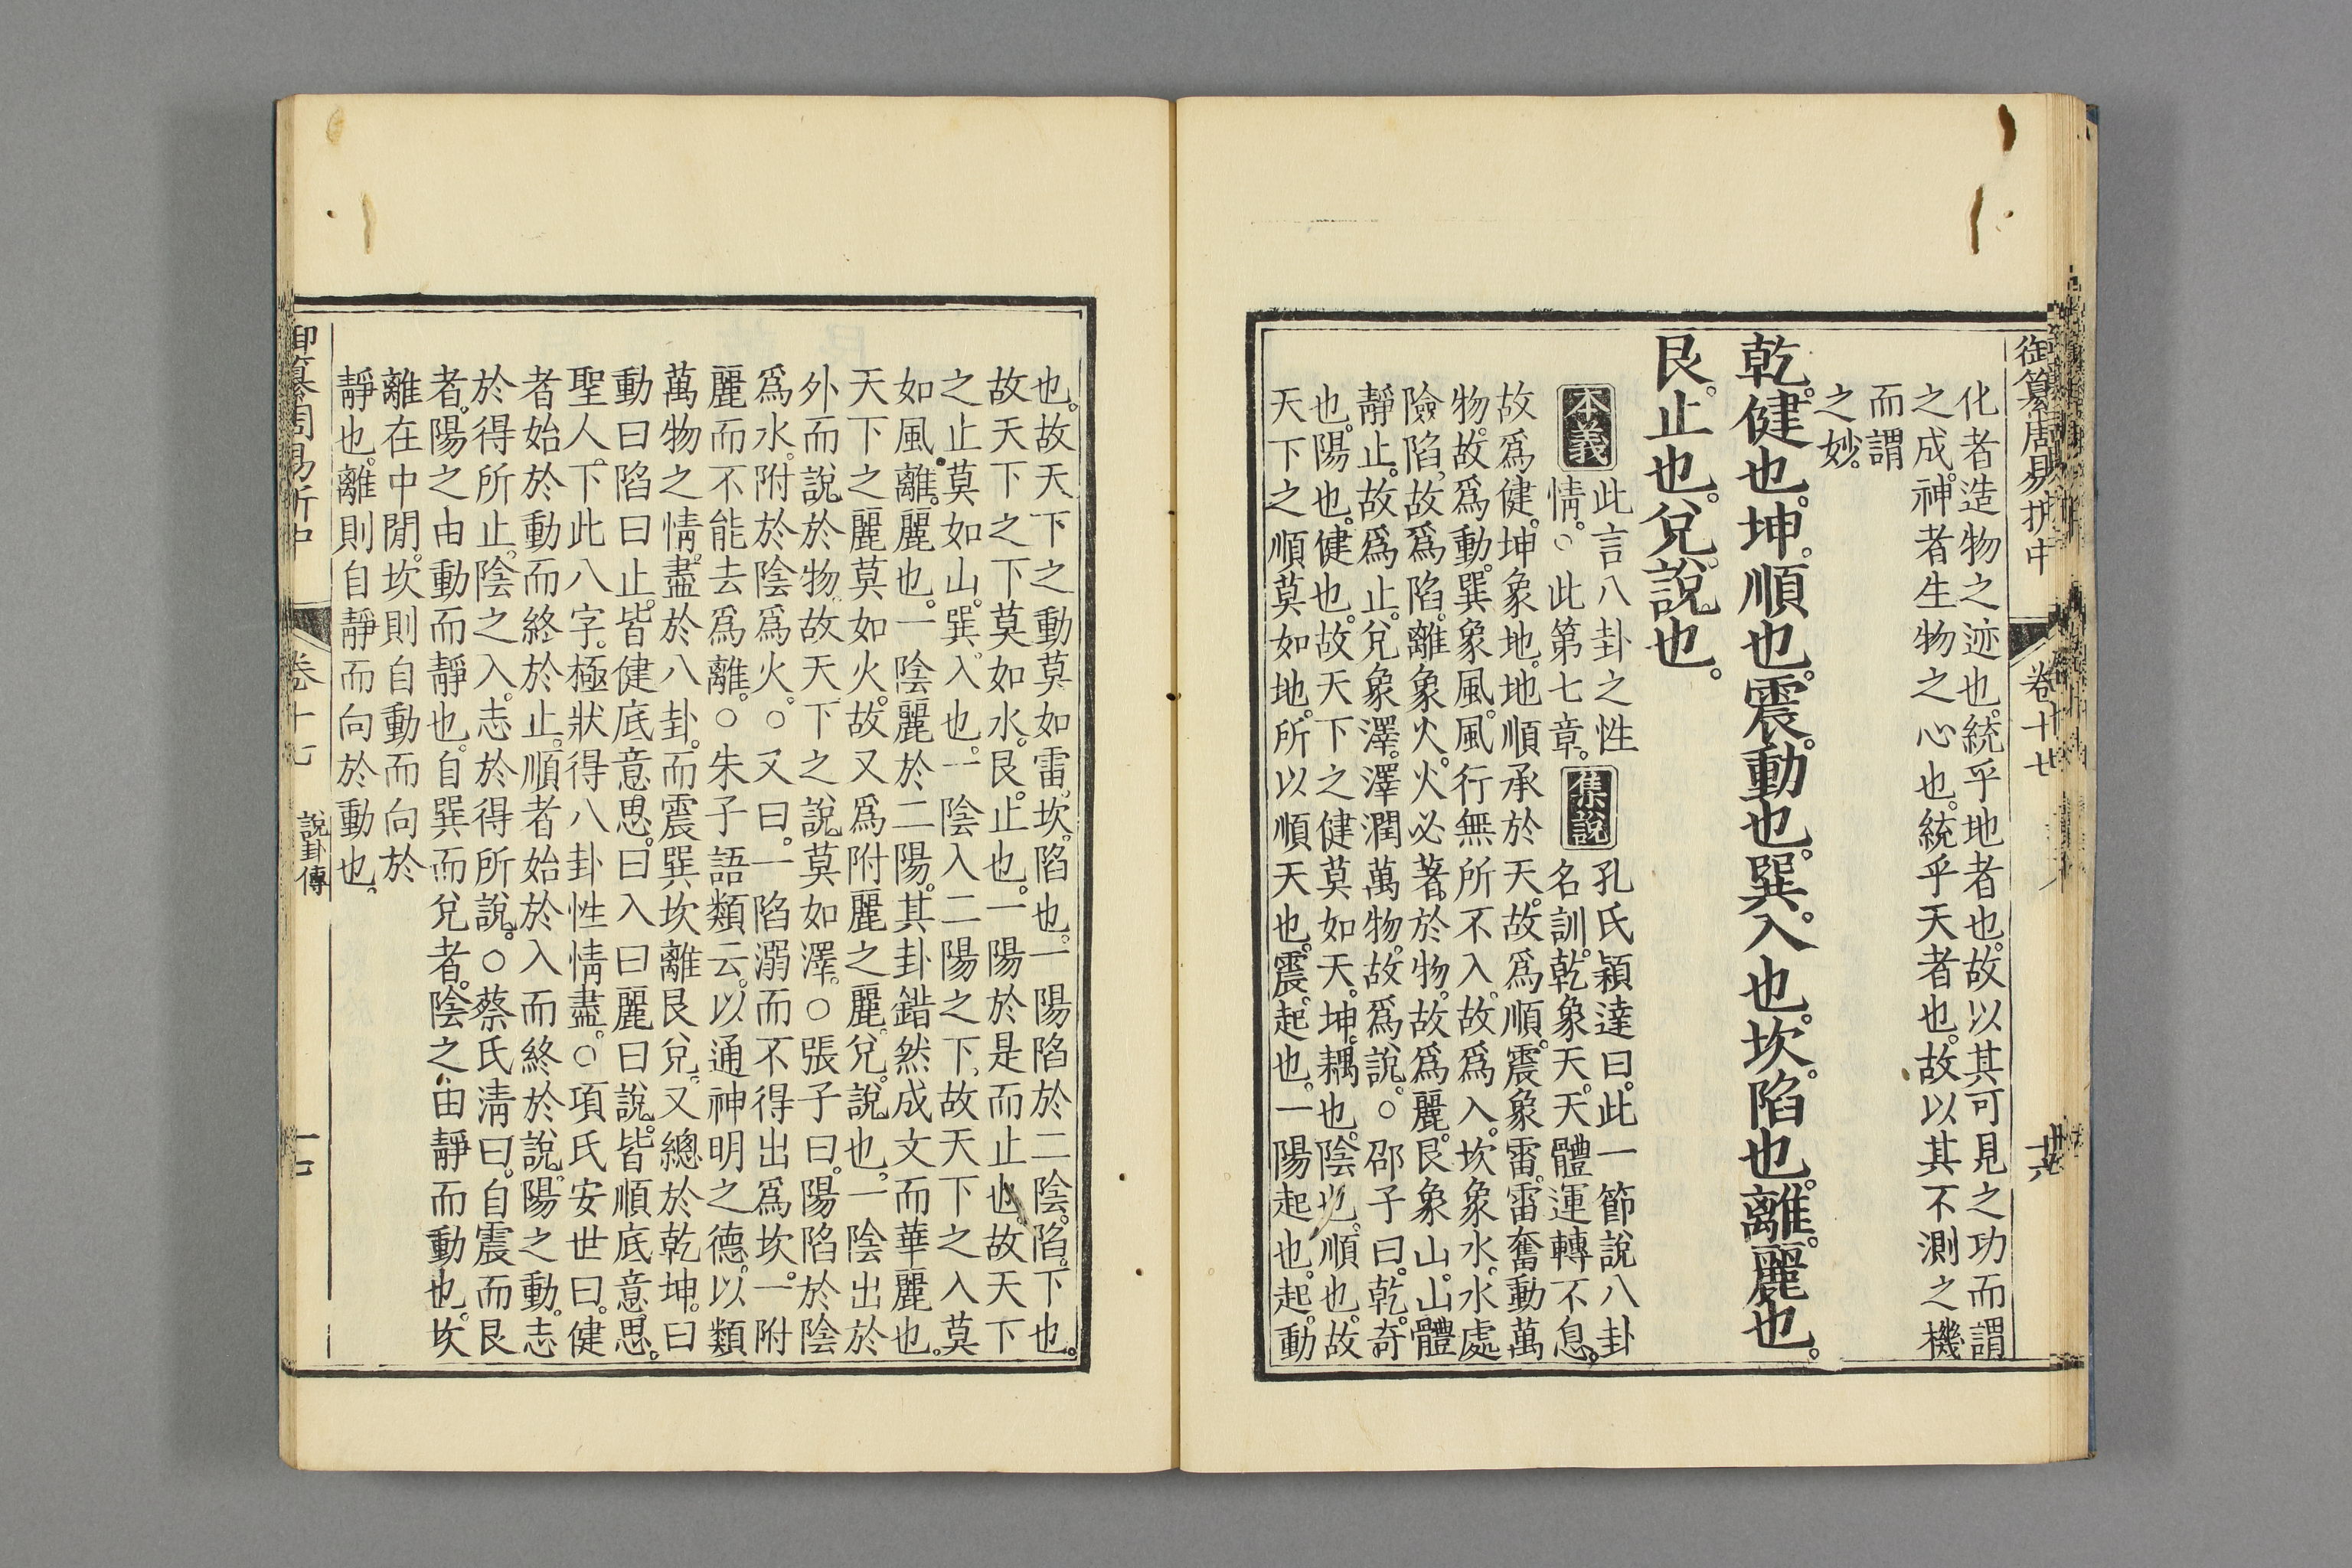 御纂周易折中
卷十七
化者造物之迹也。統乎地者也。故以其可見之功而謂
之成。神者生物之心也。統乎天者也。故以其不測之機
而謂
之妙。
乾。健也。坤。順也。震。動也。巽。入也。坎。陷也。離。麗也。
艮。止也。兌。說也。
本義
此言八卦之性
情。○此第七章。
集說
孔氏穎達曰。此一節說八卦
名訓。乾象天。天體運轉不息。
故爲健。坤象地。地順承於天。故爲順。震象雷。雷奮動萬
物。故爲動。巽象風。風行無所不入。故爲入。坎象水。水處
險陷。故爲陷。離象火。火必著於物。故爲麗。艮象山。山體
靜止。故爲止。兌象澤。澤潤萬物。故爲說。○邵子曰。乾。奇
也。陽也。健也。故天下之健莫如天。坤。耦也。陰也。順也。故
天下之順莫如地。所以順天也。震。起也。一陽起也。起。動
也。故天下之動莫如雷。坎。陷也。一陽陷於二陰。陷。下也。
故天下之下莫如水。艮。止也。一陽於是而止也。故天下
之止莫如山。巽。入也。一陰入二陽之下。故天下之入莫
如風。離。麗也。一陰麗於二陽。其卦錯然成文而華麗也。
天下之麗莫如火。故又爲附麗之麗。兌。說也。一陰出於
外而說於物。故天下之說莫如澤。○張子曰。陽陷於陰
爲水。附於陰爲火。○又曰。一陷溺而不得出爲坎。一附
麗而不能去爲離。○朱子語類云。以通神明之德。以類
萬物之情。盡於八卦。而震巽坎離艮兌。又總於乾坤。曰
動曰陷曰止。皆健底意思。曰入曰麗曰說。皆順底意思。
聖人下此八字。極狀得八卦性情盡。○項氏安世曰。健
者始於動而終於止。順者始於入而終於說。陽之動。志
於得所止。陰之入。志於得所說。○蔡氏淸曰。自震而艮
者。陽之由動而靜也。自巽而兌者。陰之由靜而動也。坎
離在中閒。坎則自動而向於
靜也。離則自靜而向於動也。
御纂周易折中
卷十七
說卦傳